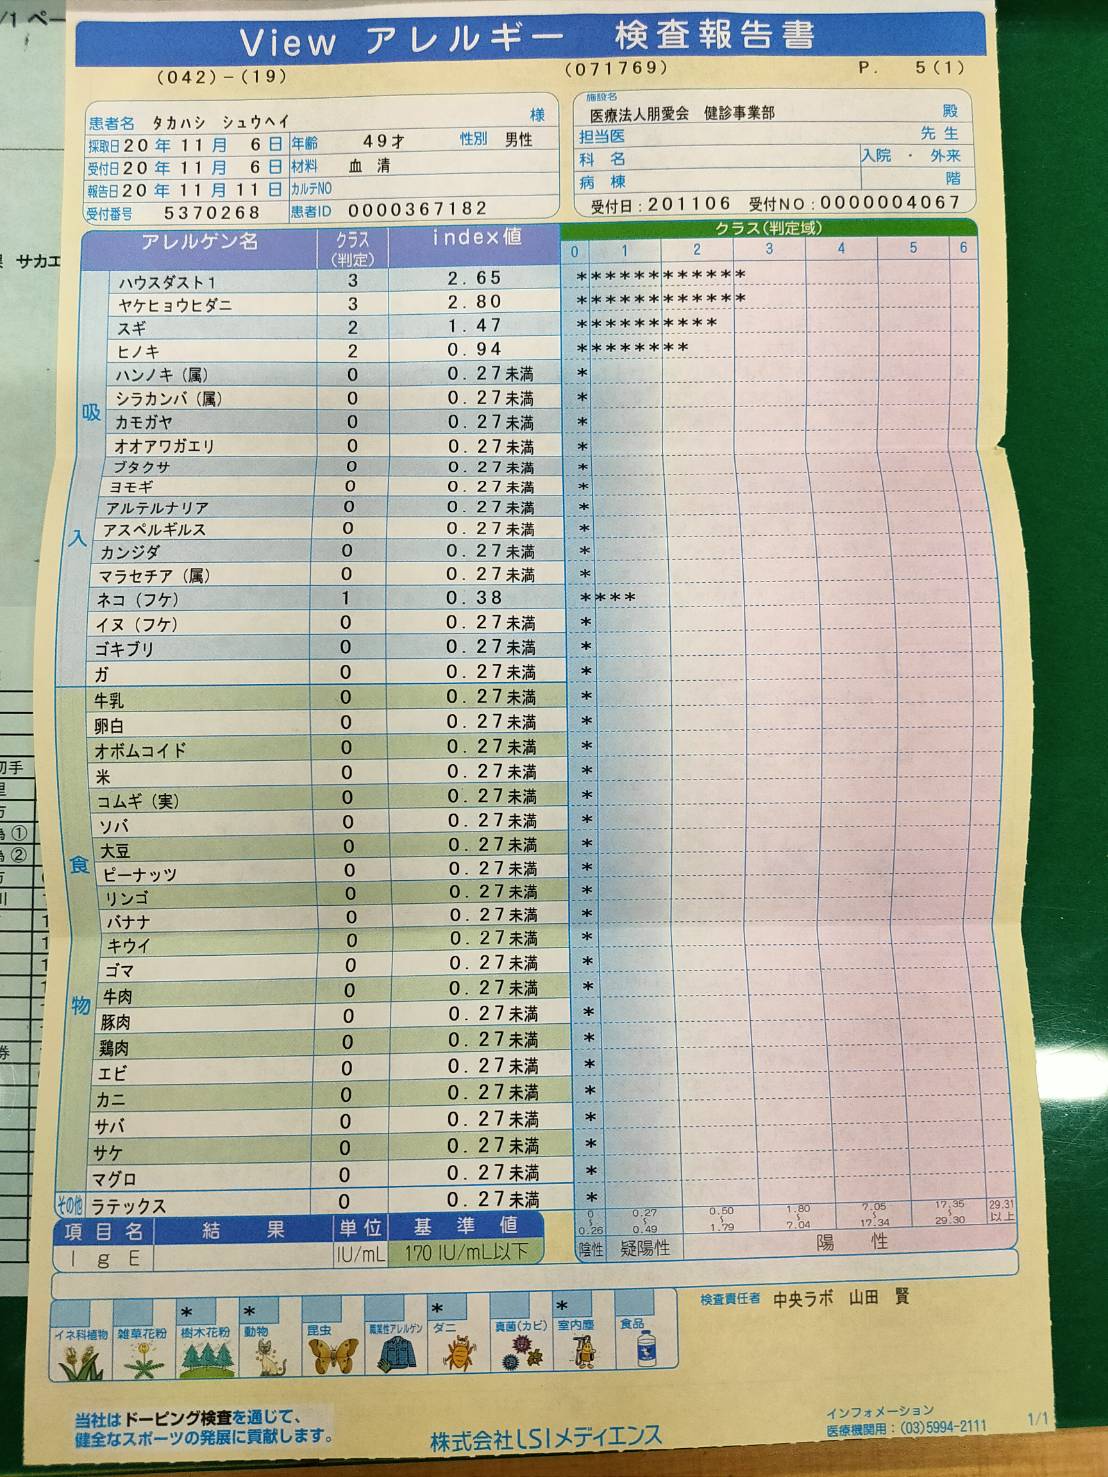 /1 ペー
View アレルギー 検査報告書
(042)-(19) (071769) P. 5(1)
患者名 タカハシ シュウヘイ 様
採取日 20年 11月 6日 年齢 49才 性別 男性
受付日 20年 11月 6日 材料 血清
報告日 20年 11月 11日 カルテNO
受付番号 5370268 患者ID 0000367182
施設名
医療法人朋愛会 健診事業部 殿
担当医 先生
科名 入院 ・ 外来
病棟 階
受付日:201106 受付NO:0000004067
サカエ
アレルゲン名 クラス(判定) index値 クラス(判定域)
0 1 2 3 4 5 6
吸入
ハウスダスト1 3 2.65 ************
ヤケヒョウヒダニ 3 2.80 ************
スギ 2 1.47 **********
ヒノキ 2 0.94 ********
ハンノキ(属) 0 0.27未満 *
シラカンバ(属) 0 0.27未満 *
カモガヤ 0 0.27未満 *
オオアワガエリ 0 0.27未満 *
ブタクサ 0 0.27未満 *
ヨモギ 0 0.27未満 *
アルテルナリア 0 0.27未満 *
アスペルギルス 0 0.27未満 *
カンジダ 0 0.27未満 *
マラセチア(属) 0 0.27未満 *
ネコ(フケ) 1 0.38 ****
イヌ(フケ) 0 0.27未満 *
ゴキブリ 0 0.27未満 *
ガ 0 0.27未満 *
食物
牛乳 0 0.27未満 *
卵白 0 0.27未満 *
オボムコイド 0 0.27未満 *
米 0 0.27未満 *
コムギ(実) 0 0.27未満 *
ソバ 0 0.27未満 *
大豆 0 0.27未満 *
ピーナッツ 0 0.27未満 *
リンゴ 0 0.27未満 *
バナナ 0 0.27未満 *
キウイ 0 0.27未満 *
ゴマ 0 0.27未満 *
牛肉 0 0.27未満 *
豚肉 0 0.27未満 *
鶏肉 0 0.27未満 *
エビ 0 0.27未満 *
カニ 0 0.27未満 *
サバ 0 0.27未満 *
サケ 0 0.27未満 *
マグロ 0 0.27未満 *
その他 ラテックス 0 0.27未満 *
0〜0.26 0.27〜0.49 0.50〜1.79 1.80〜7.04 7.05〜17.34 17.35〜29.30 29.31以上
陰性 疑陽性 陽性
項目名 結果 単位 基準値
IgE IU/mL 170 IU/mL以下
* * * *
イネ科植物 雑草花粉 樹木花粉 動物 昆虫 職業性アレルゲン ダニ 真菌(カビ) 室内塵 食品
検査責任者 中央ラボ 山田 賢
当社はドーピング検査を通じて、
健全なスポーツの発展に貢献します。
株式会社LSIメディエンス
インフォメーション
医療機関用:(03)5994-2111
1/1